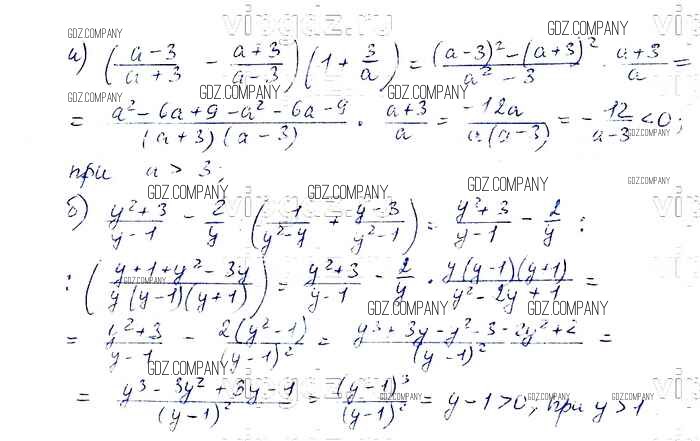 а) ( (a-3)/(a+3) - (a+3)/(a-3) ) (1 + 3/a) = ( (a-3)² - (a+3)² )/(a² - 3) · (a+3)/a =
= (a² - 6a + 9 - a² - 6a - 9)/((a+3)(a-3)) · (a+3)/a = (-12a)/(a(a-3)) = - 12/(a-3) < 0;
при a > 3;
б) (y²+3)/(y-1) - 2/y : ( 1/(y²-y) + (y-3)/(y²-1) ) = (y²+3)/(y-1) - 2/y :
: ( (y+1+y²-3y)/(y(y-1)(y+1)) ) = (y²+3)/(y-1) - 2/y · (y(y-1)(y+1))/(y²-2y+1) =
= (y²+3)/(y-1) - (2(y²-1))/(y-1)² = (y³+3y-y²-3-2y²+2)/(y-1)² =
= (y³-3y²+3y-1)/(y-1)² = (y-1)³/(y-1)² = y-1>0, при y>1
GDZ.COMPANY